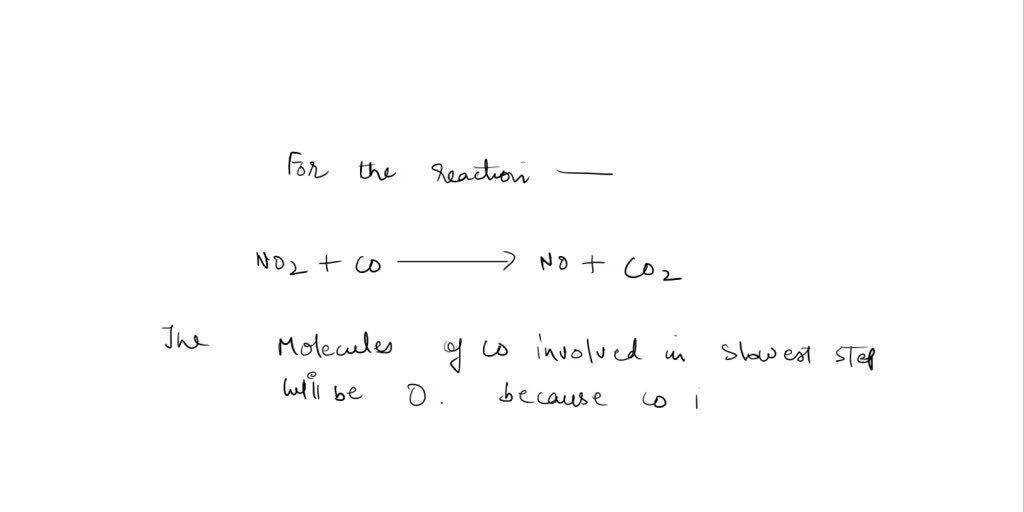 For the reaction —
NO2 + CO → NO + CO2
The Molecules of CO involved in slowest step
will be 0. because CO i